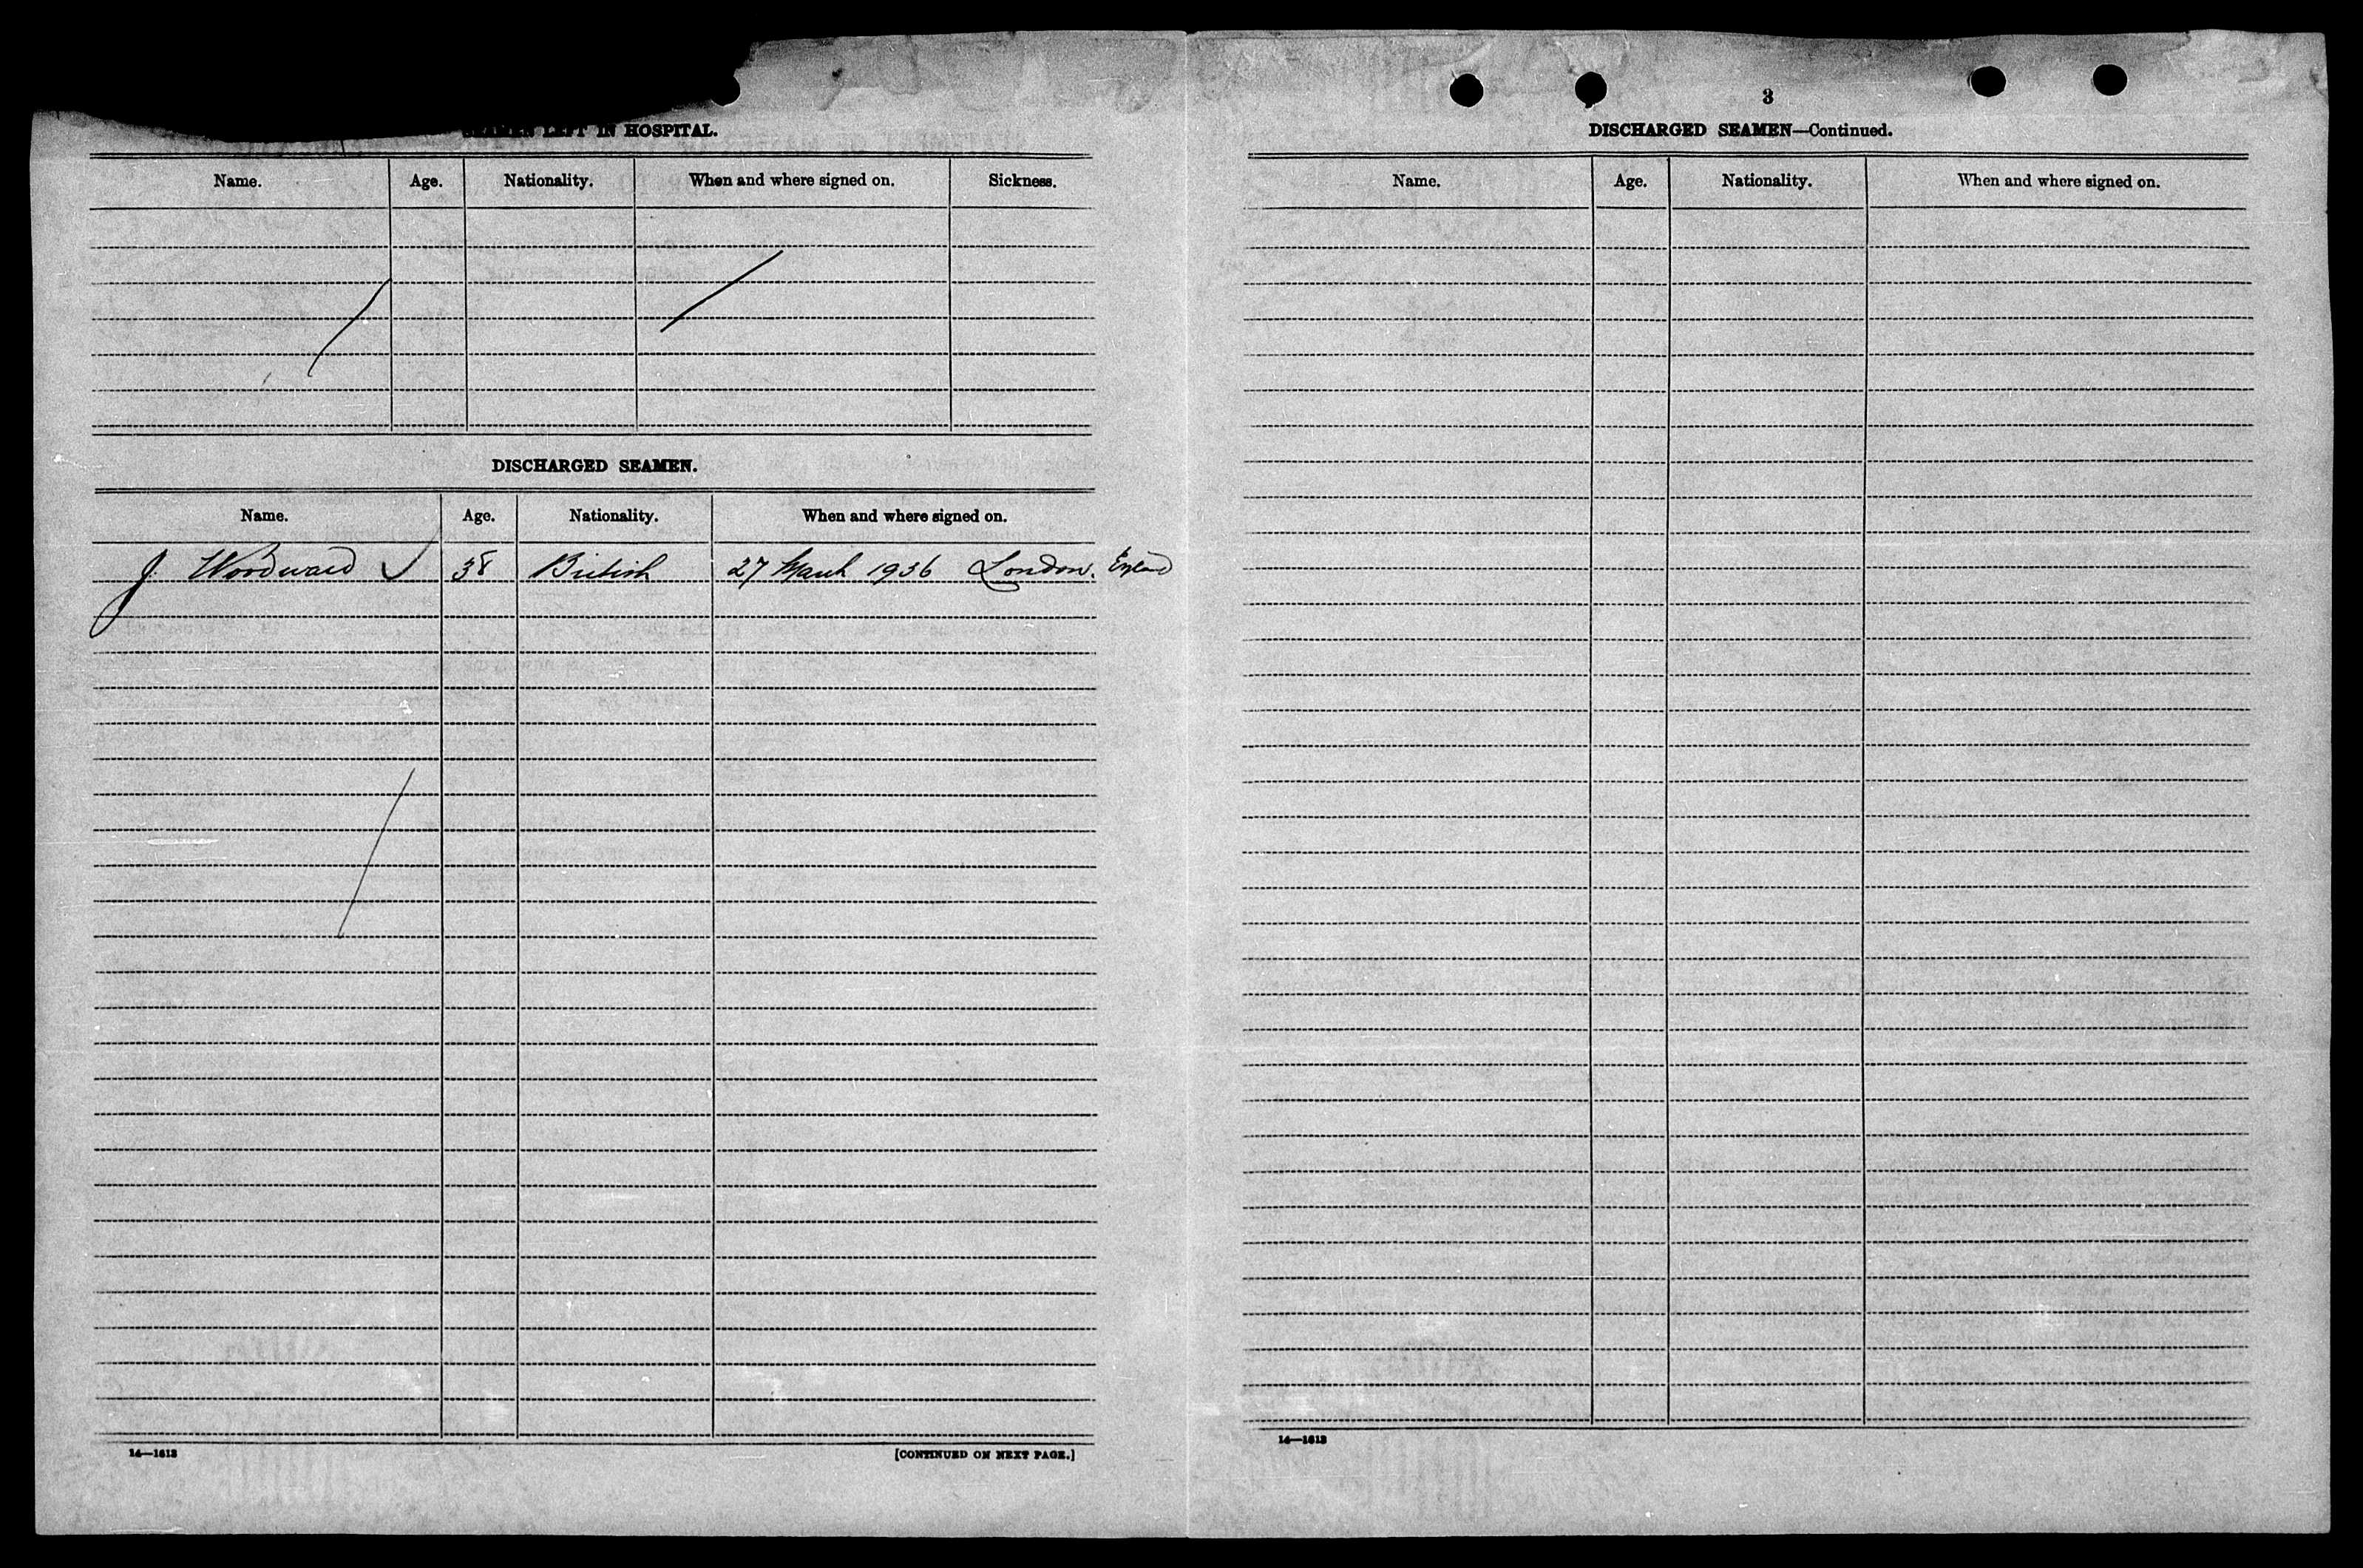 SEAMEN LEFT IN HOSPITAL.
Name. Age. Nationality. When and where signed on. Sickness.
DISCHARGED SEAMEN.
Name. Age. Nationality. When and where signed on.
J. Woodward ✓ 38 British 27 March 1936 London. England
14—1613
[CONTINUED ON NEXT PAGE.]
3
DISCHARGED SEAMEN—Continued.
Name. Age. Nationality. When and where signed on.
14—1613